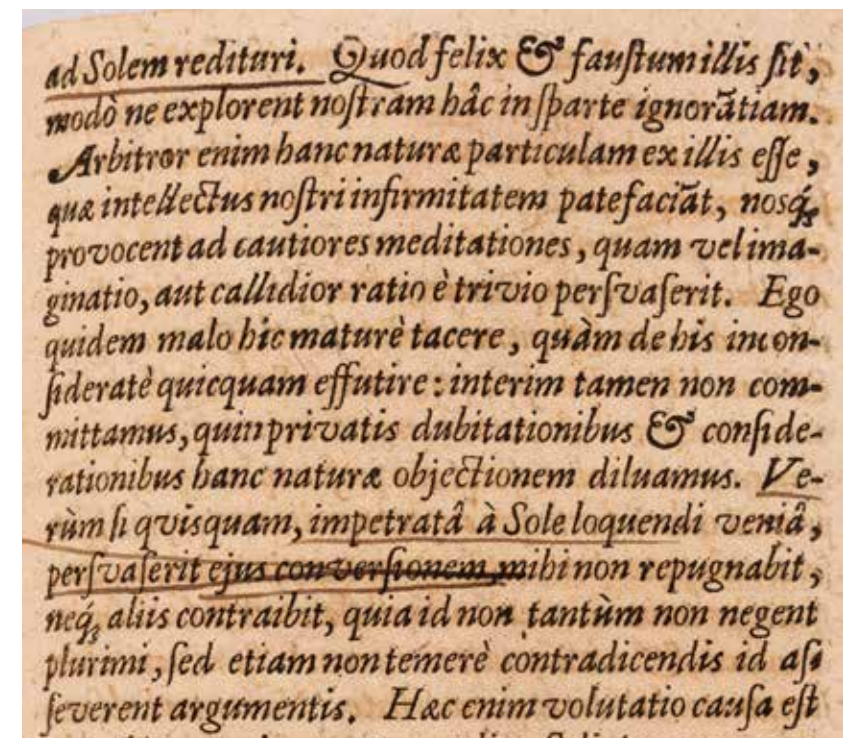 ad Solem redituri. Quod felix & fauſtum illis ſit,
modò ne explorent noſtram hâc in ſparte ignorãtiam.
Arbitror enim hanc naturæ particulam ex illis eſſe,
quæ intellectus noſtri infirmitatem patefaciãt, nosq́;
provocent ad cautiores meditationes, quam vel ima-
ginatio, aut callidior ratio è trivio perſvaſerit. Ego
quidem malo hic maturè tacere, quàm de his incon-
ſideratè quicquam effutire: interim tamen non com-
mittamus, quin privatis dubitationibus & conſide-
rationibus hanc naturæ objectionem diluamus. Ve-
rùm ſi qvisquam, impetratâ à Sole loquendi veniâ,
perſvaſerit ejus converſionem, mihi non repugnabit,
neq́; aliis contraibit, quia id non tantùm non negent
plurimi, ſed etiam non temerè contradicendis id aſ-
ſeverent argumentis. Hæc enim volutatio cauſa eſt